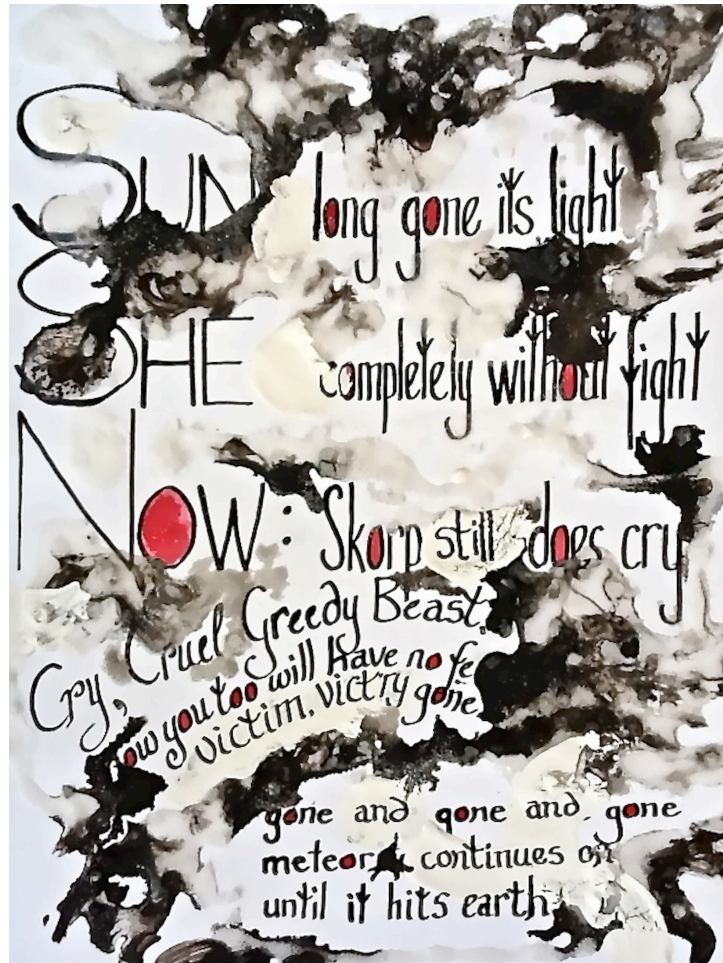 SUN long gone its light
SHE completely without fight
NOW: Skorp still does cry
Cry, Cruel Greedy Beast,
ow you too will have no fe
victim, victry gone
gone and gone and gone
meteor continues on
until it hits earth